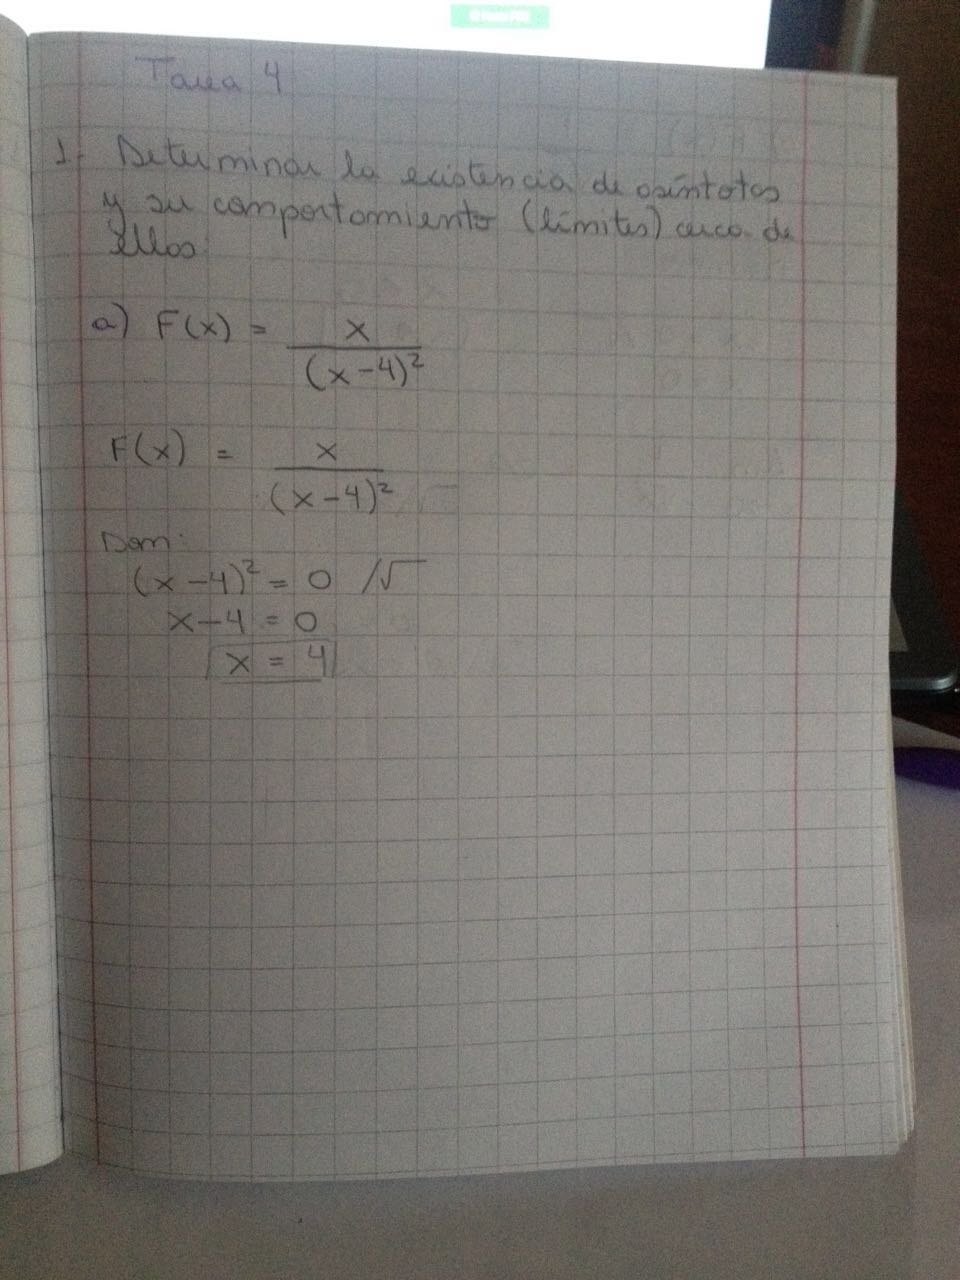 Tarea 4
1- Determinar la existencia de asíntotas
y su comportamiento (límites) cerca de
ellos
a) F(x) = x / (x-4)²
F(x) = x / (x-4)²
Dom:
(x-4)² = 0 /√
x-4 = 0
x = 4